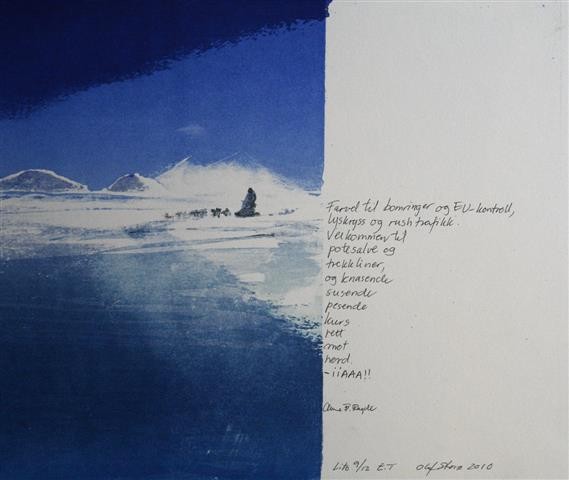 Farvel til bomringer og EU-kontroll,
lyskryss og rushtrafikk.
Velkommen til
potesalve og
trekkliner,
og knasende
susende
pesende
kurs
rett
mot
nord.
-iiAAA!!
Anne B. Ragde
Lito 9/12 E.T Olaf Storø 2010